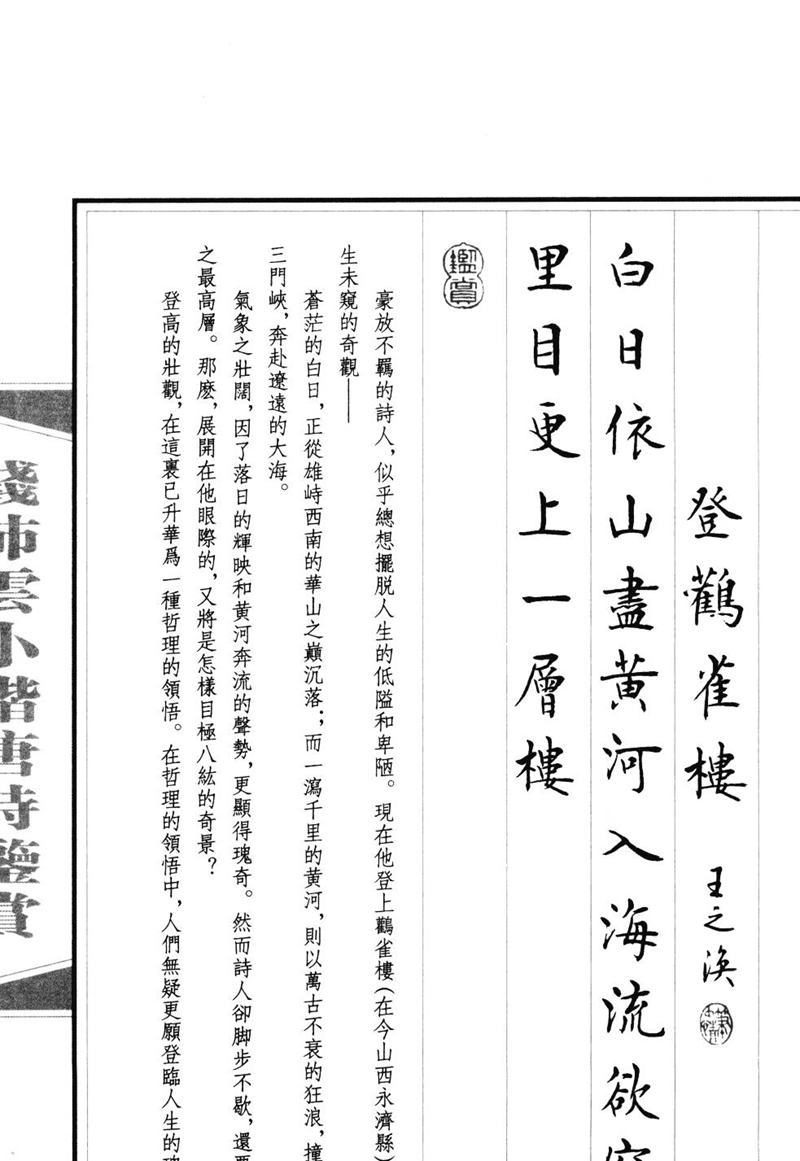 登鸛雀樓 王之渙
白日依山盡黄河入海流欲窮
里目更上一層樓
鑑賞
豪放不羈的詩人，似乎總想擺脱人生的低隘和卑陋。現在他登上鸛雀樓（在今山西永濟縣）
生未窺的奇觀——
蒼茫的白日，正從雄峙西南的華山之巔沉落；而一瀉千里的黄河，則以萬古不衰的狂浪，撞
三門峽，奔赴遼遠的大海。
氣象之壯闊，因了落日的輝映和黄河奔流的聲勢，更顯得瑰奇。然而詩人卻脚步不歇，還要
之最高層。那麽，展開在他眼際的，又將是怎樣目極八紘的奇景？
登高的壯觀，在這裏已升華爲一種哲理的領悟。在哲理的領悟中，人們無疑更願登臨人生的
錢沛雲小楷唐詩鑒賞